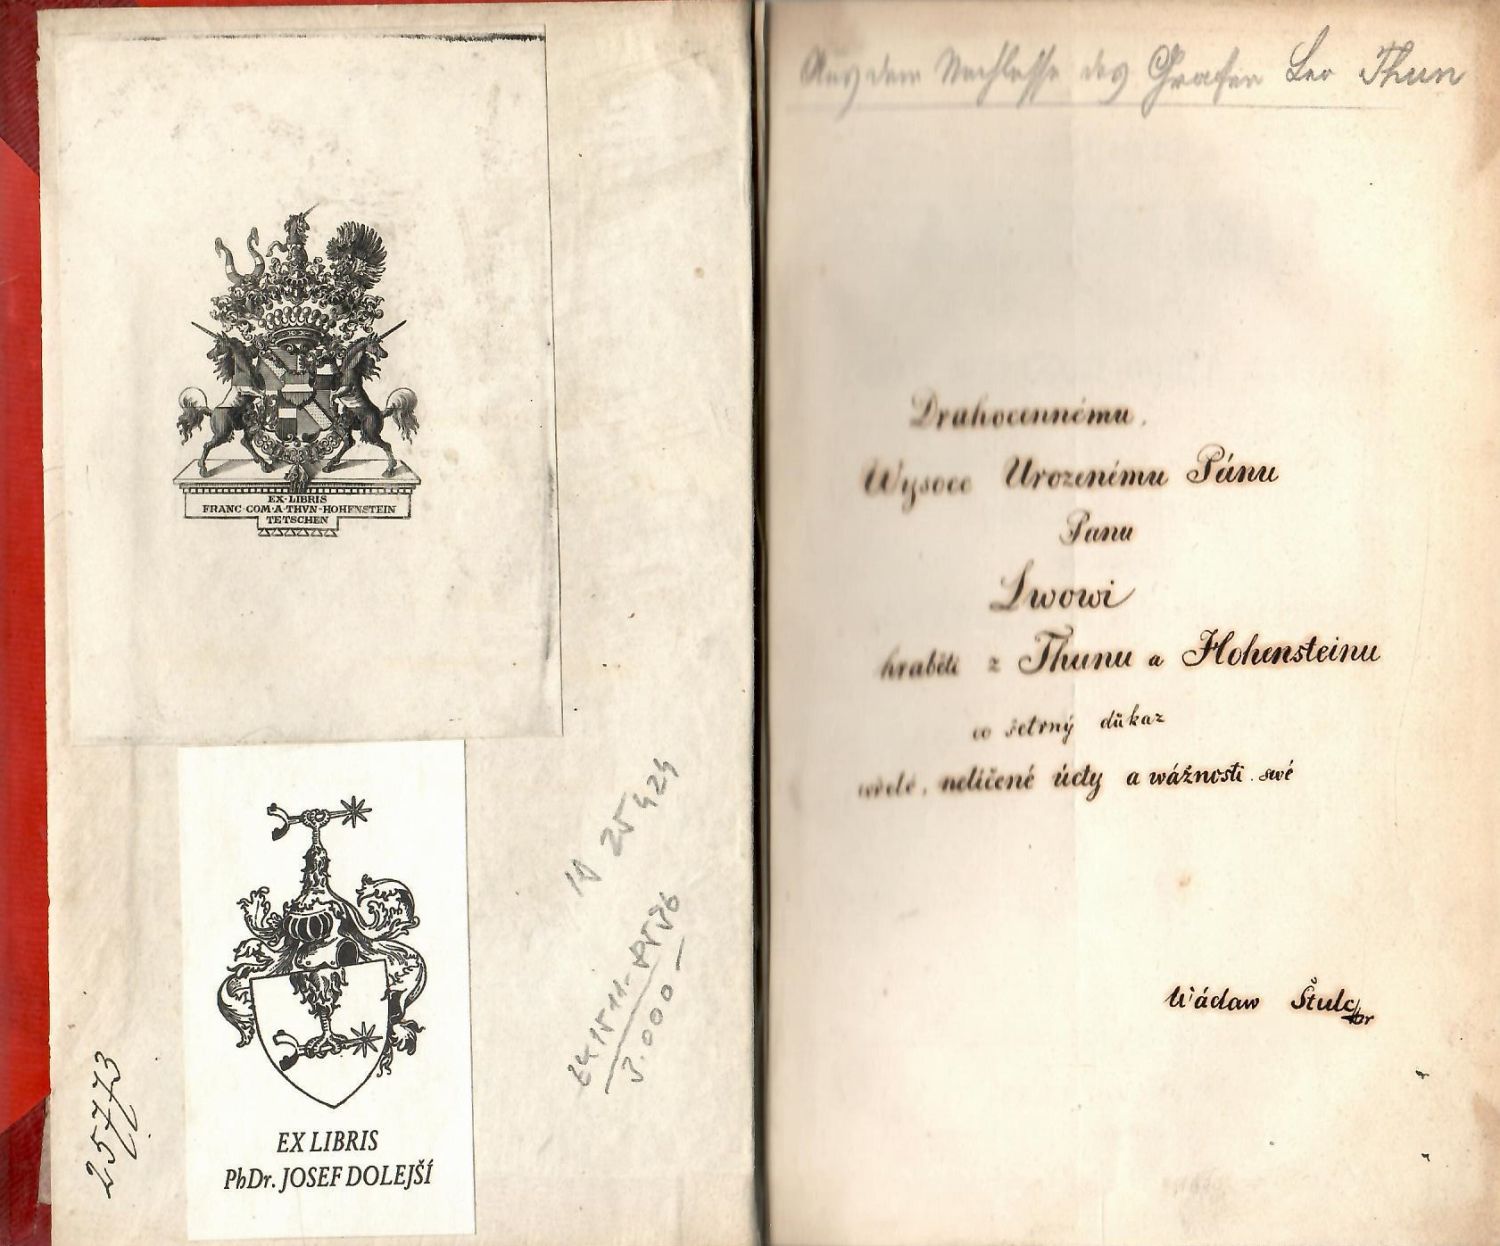 EX·LIBRIS
FRANC·COM·A·THVN-HOHENSTEIN
TETSCHEN
EX LIBRIS
PhDr. JOSEF DOLEJŠÍ
25773
25424
3.000 –
Aus dem Nachlasse des Grafen Leo Thun
Drahocennému,
Wysoce Urozenému Pánu
Panu
Lwowi
hraběti z Thunu a Hohensteinu
co šetrný důkaz
wřelé, nelíčené úcty a wážnosti swé
Wáclaw Štulc